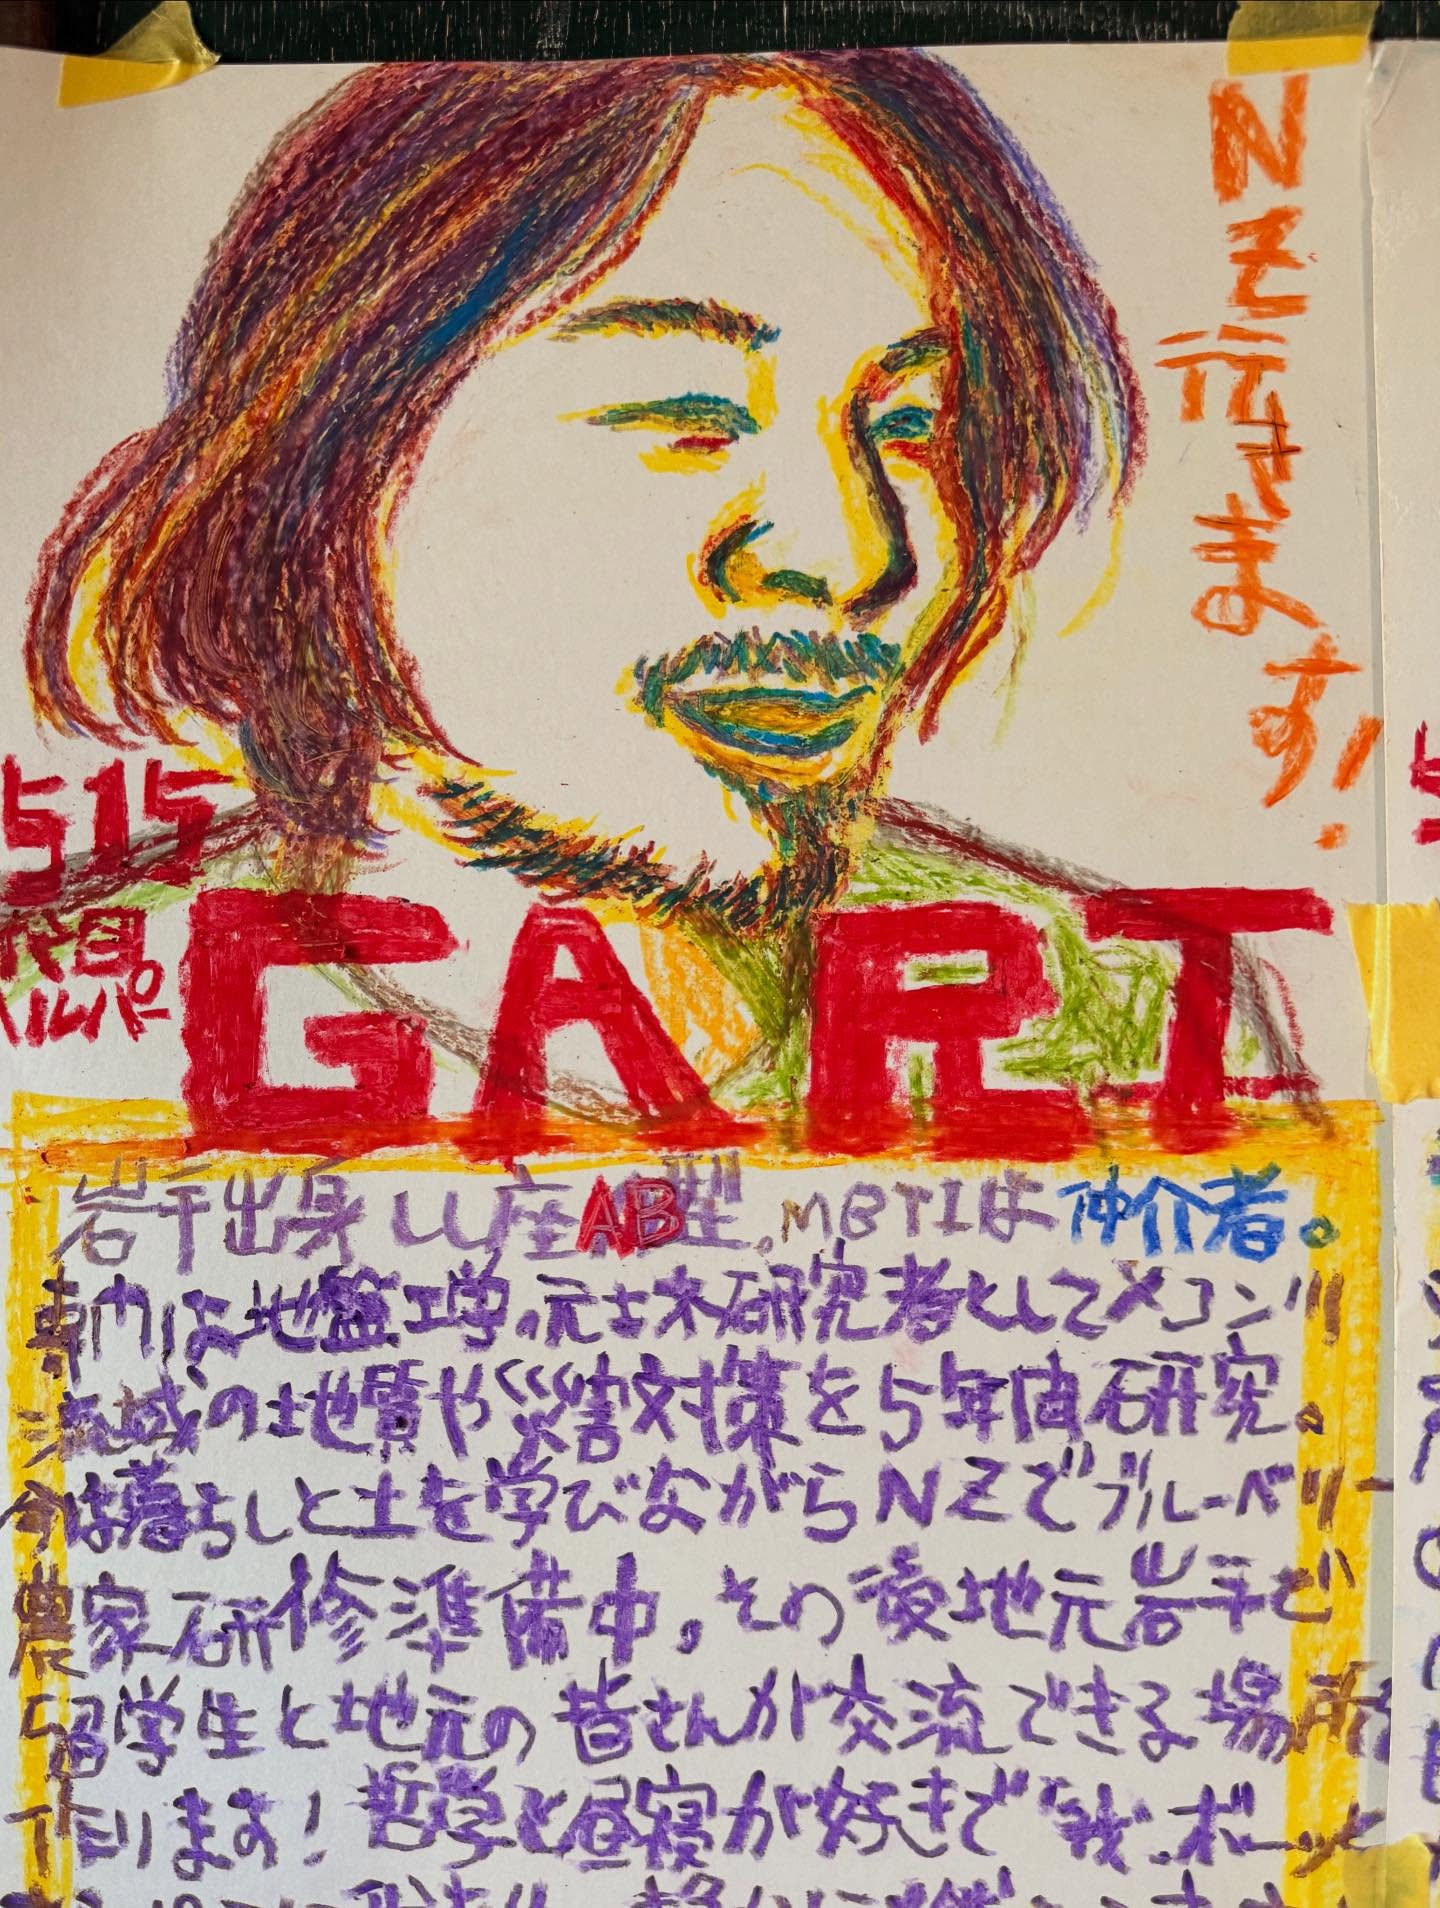 NZ行きます!
515
代目
ヘルパー
GART
岩手出身 山座AB型。MBTIは仲介者。
専門は地盤工学。元土木研究者としてメコン川
流域の地質や災害対策を5年間研究。
今は暮らしと土を学びながらNZでブルーベリー
農家研修準備中。その後地元岩手で
留学生と地元の皆さんが交流できる場所
作ります!哲学と昼寝が好きで